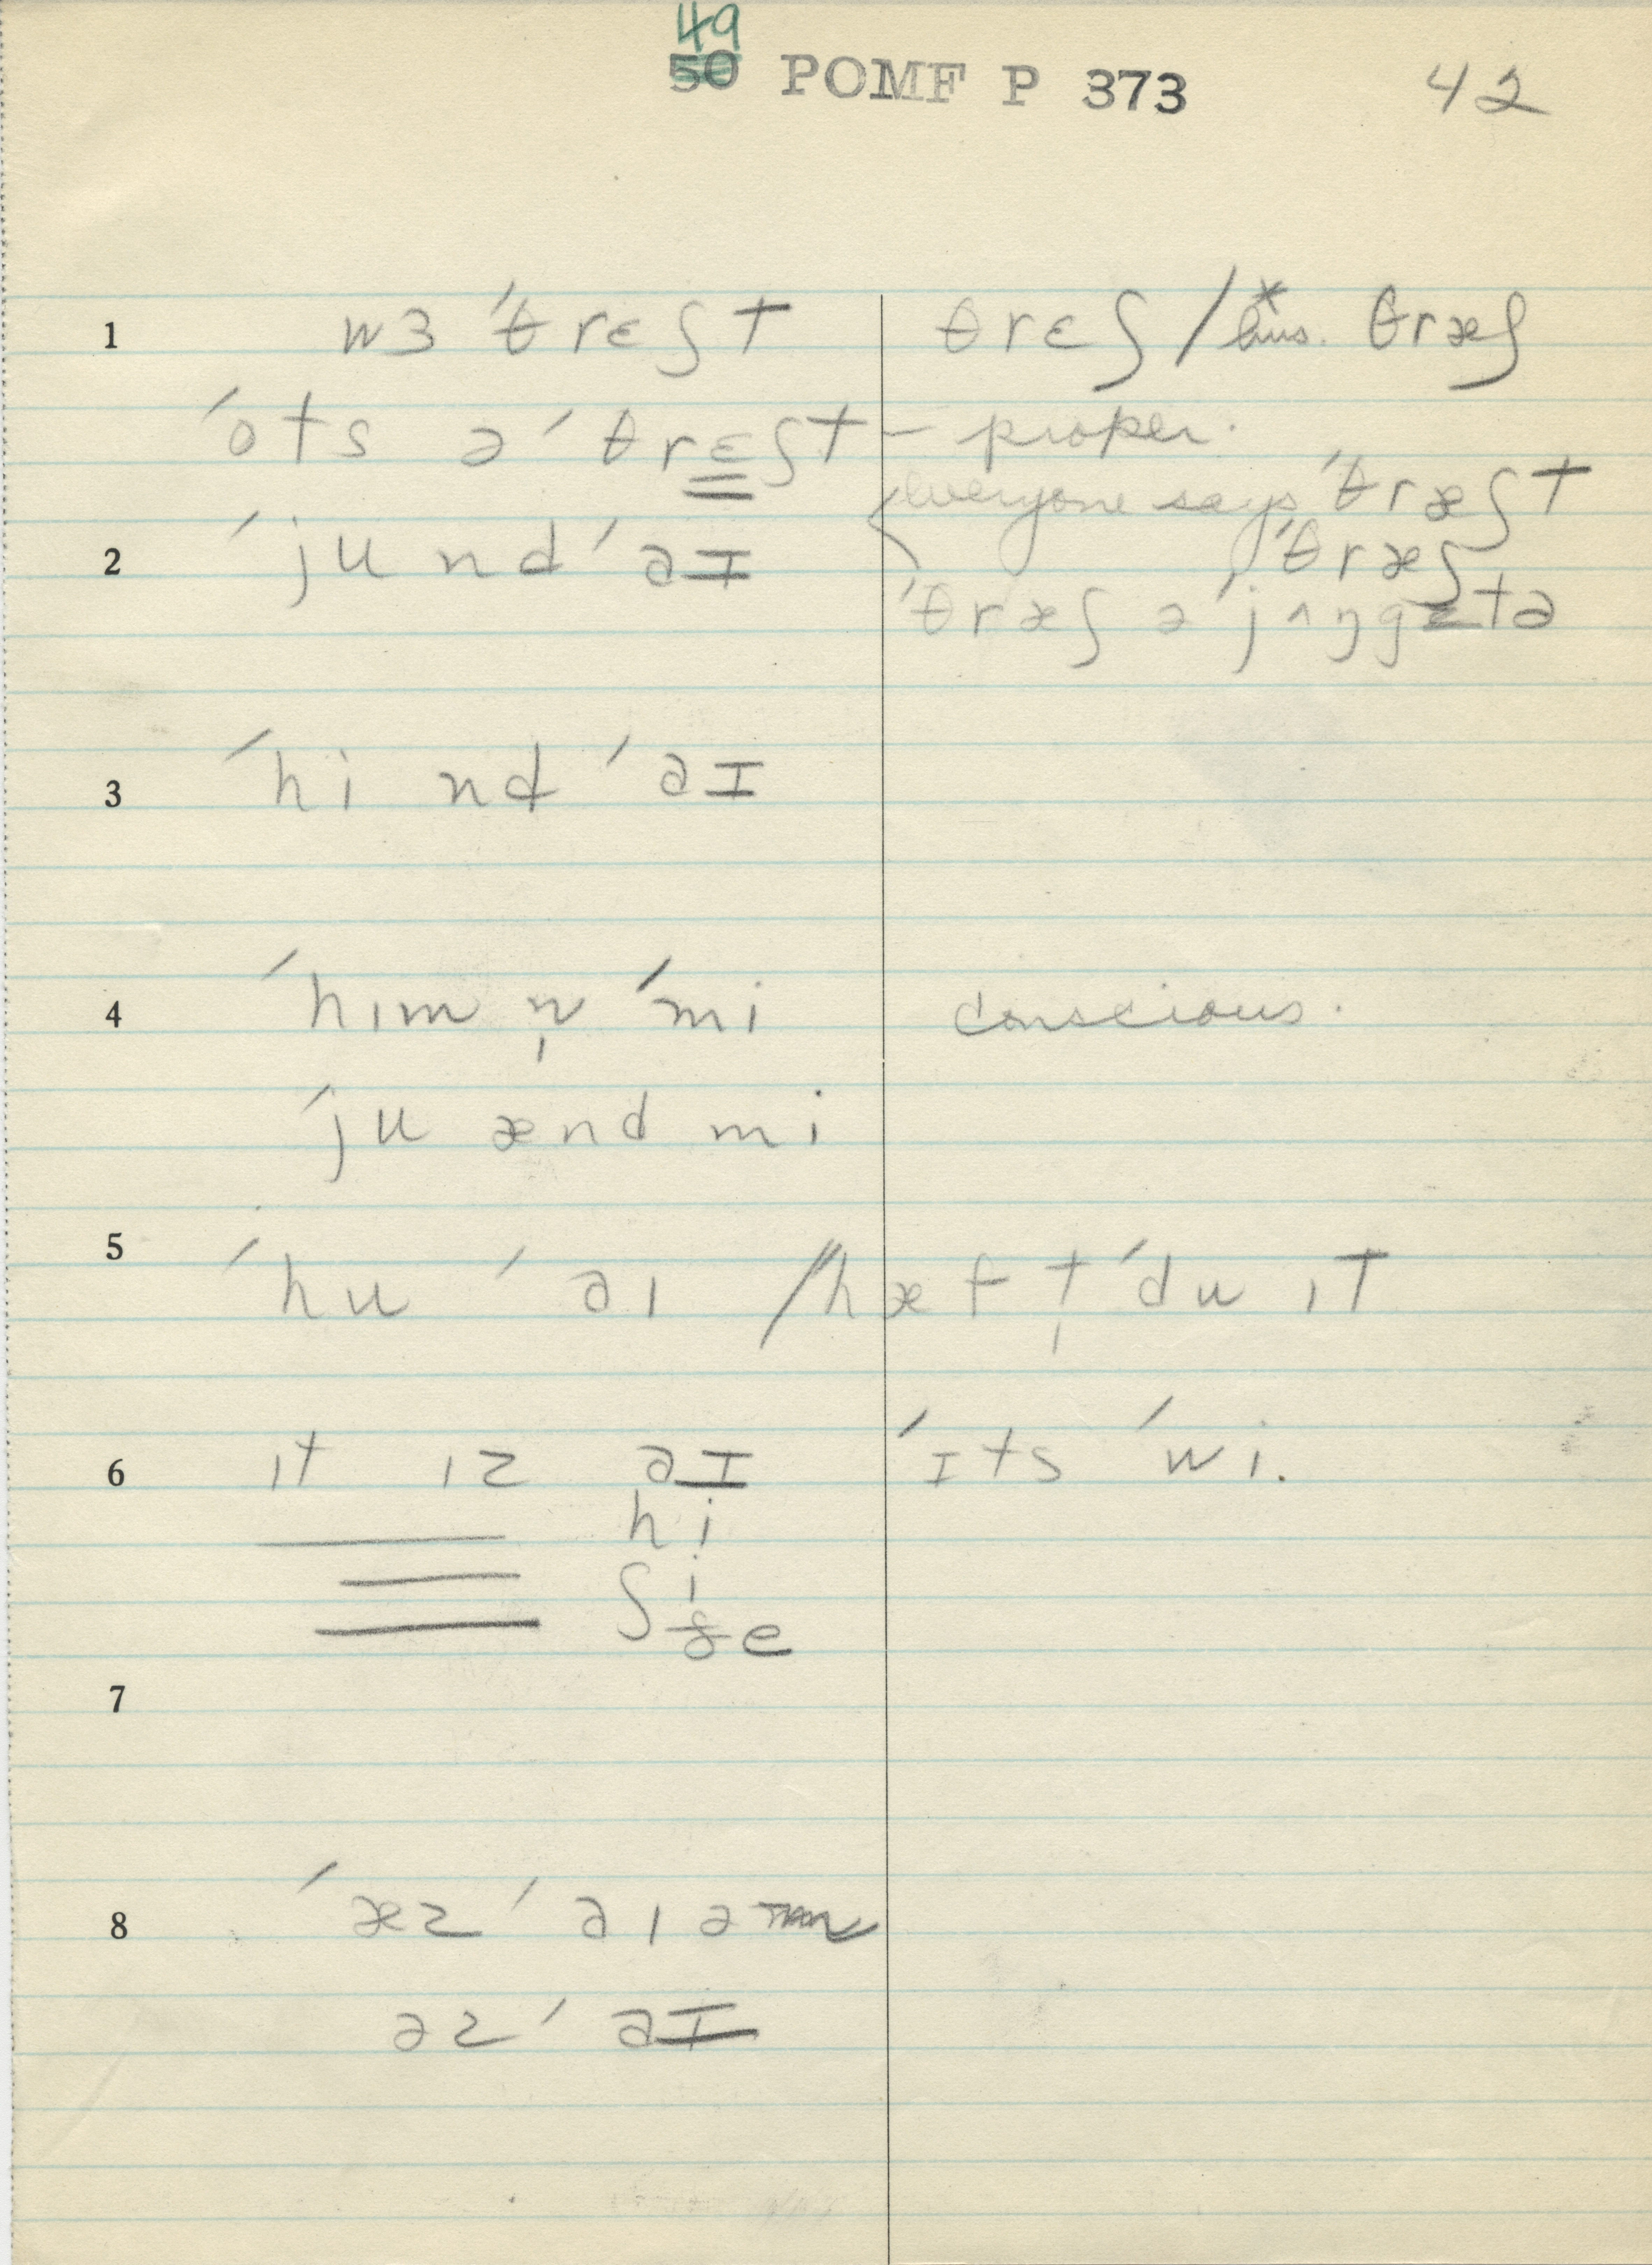 49
50 POMF P 373 42
1 wɜ ˈθrɛʃt θrɛʃ / * hus. θræʃ
ˈots ə ˈθrɛʃt – proper.
everyone says ˈθræʃt
2 ˈju nd ˈəɪ ˈθræʃ
ˈθræʃ ə ˈjʌŋgɛtə
3 ˈhi nd ˈəɪ
4 ˈhɪm n̩ ˈmi conscious.
ˈju ænd mi
5 ˈhu ˈəɪ / hæf t̩ ˈdu ɪt
6 ɪt ɪz əɪ ˈɪts ˈwi.
hi
ʃi
ðe
7
8 ˈæz ˈəɪ ə
əz ˈəɪ